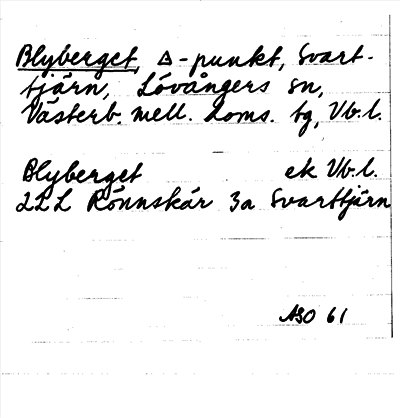 Blyberget, Δ-punkt, Svart-
tjärn, Lövångers sn,
Västerb. mell. doms. tg, Vb.l.
Blyberget ek Vb.l.
22L Rönnskär 3a Svarttjärn
ASO 61